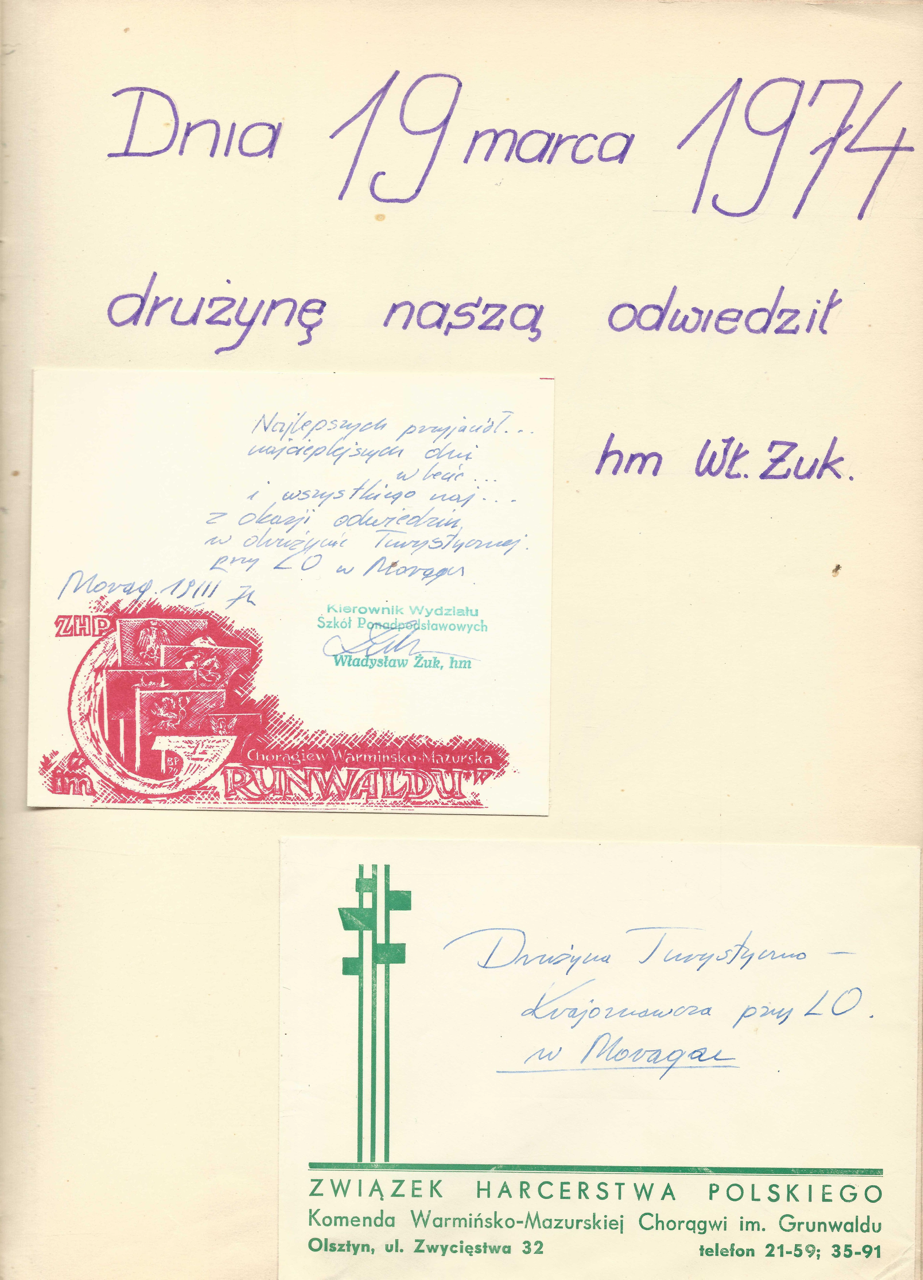 Dnia 19 marca 1974
drużynę naszą odwiedził
hm Wł. Żuk.
Najlepszych przyjaciół...
najcieplejszych dni
w lecie...
i wszystkiego naj...
z okazji odwiedzin
w drużynie Turystycznej
przy LO w Morągu
Morąg 19/III
Kierownik Wydziału
Szkół Ponadpodstawowych
Władysław Żuk, hm
ZHP
BP
Chorągiew Warmińsko-Mazurska
im "GRUNWALDU"
Drużyna Turystyczno –
Krajoznawcza przy LO.
w Morągu
ZWIĄZEK HARCERSTWA POLSKIEGO
Komenda Warmińsko-Mazurskiej Chorągwi im. Grunwaldu
Olsztyn, ul. Zwycięstwa 32 telefon 21-59; 35-91